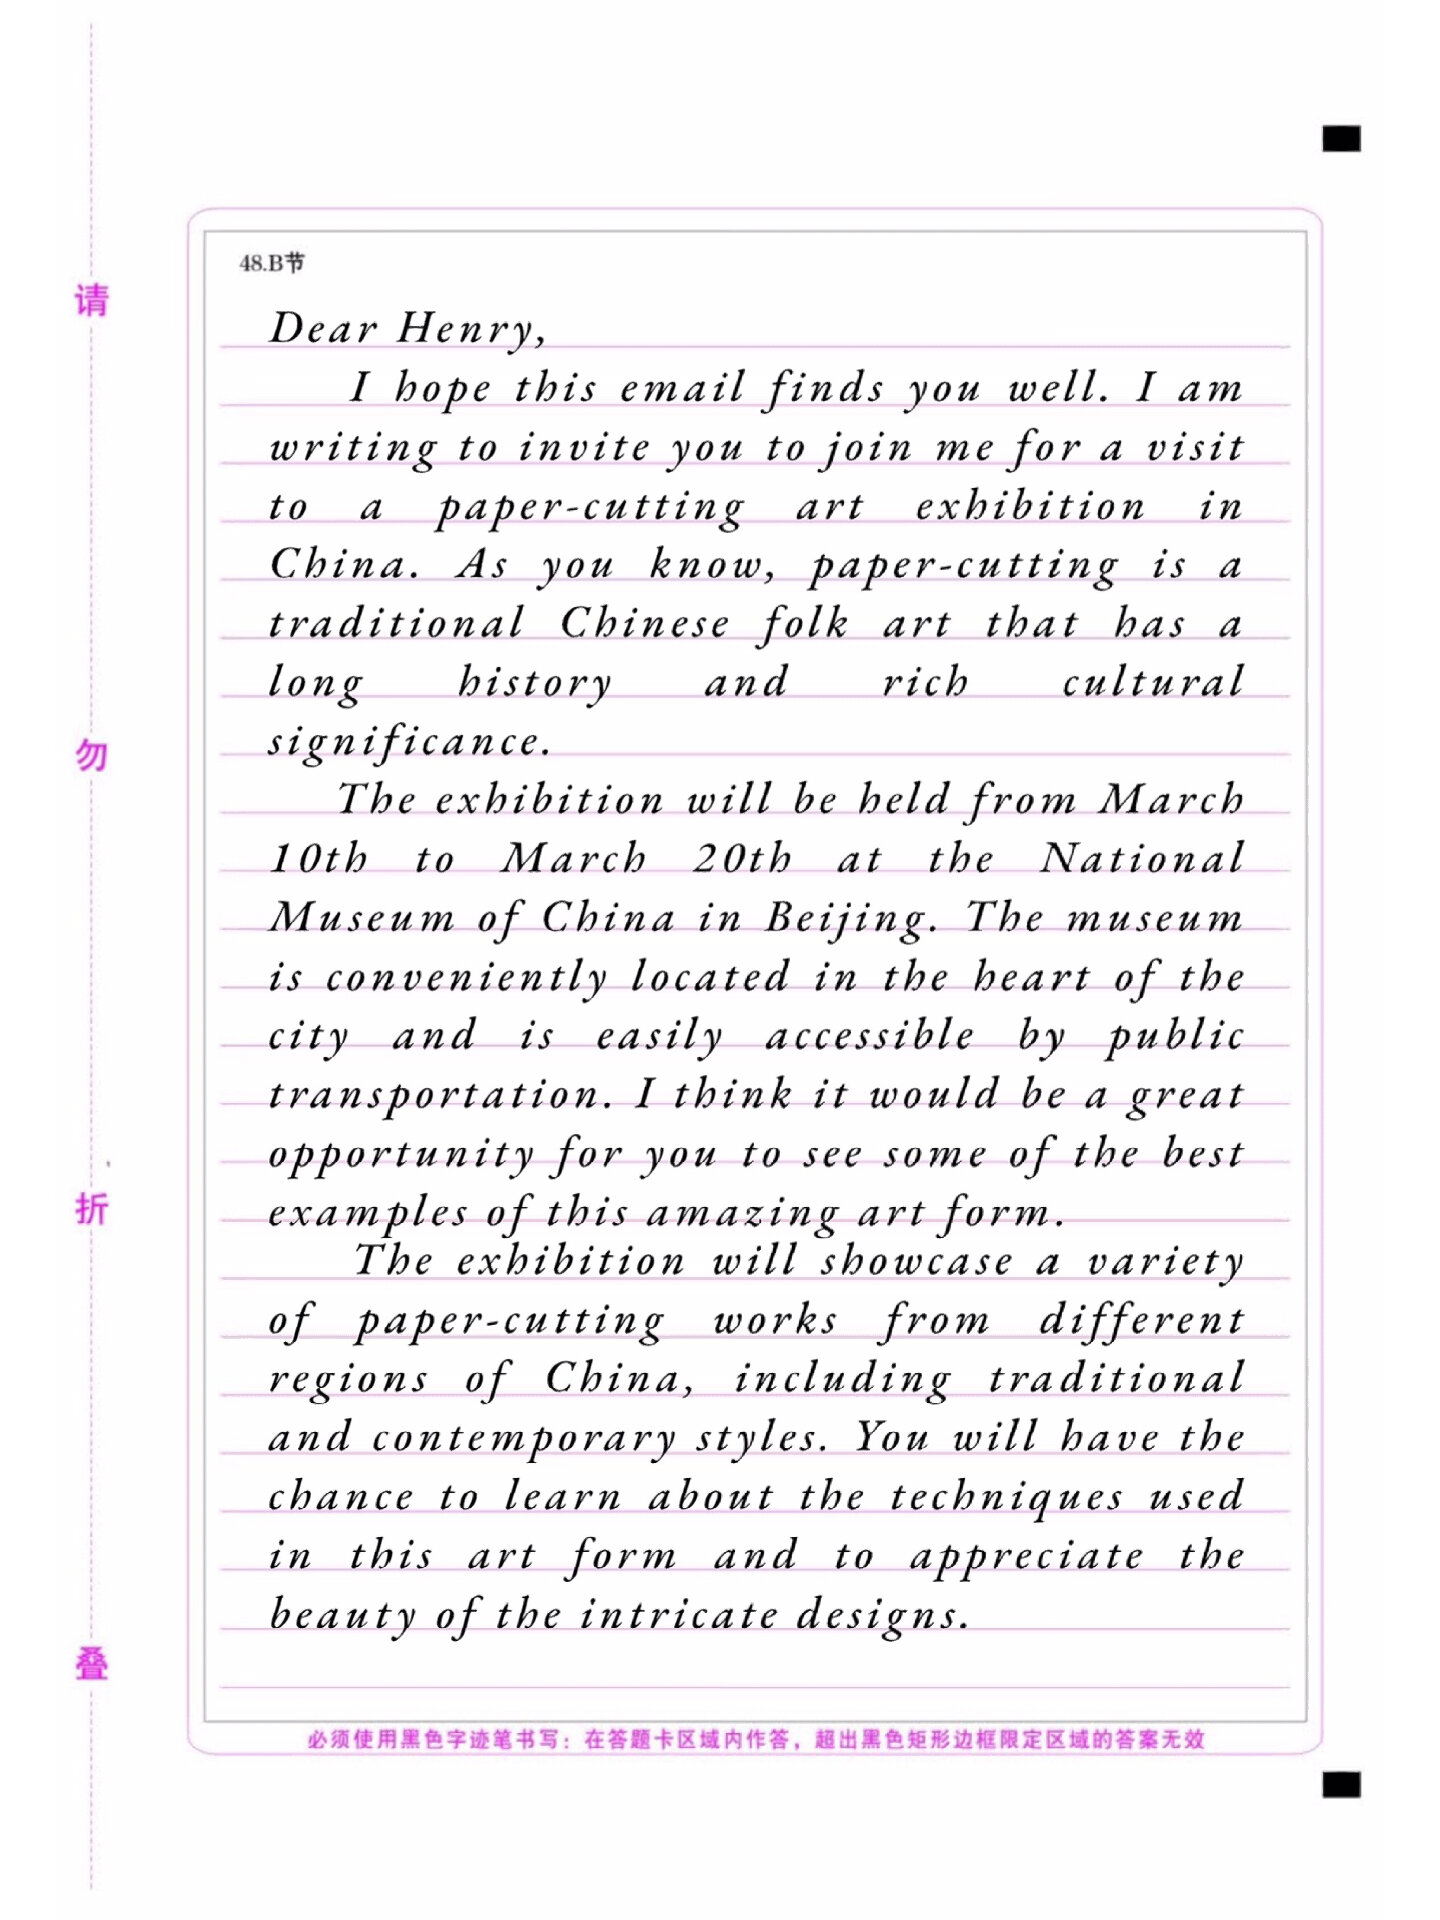 48.B节
Dear Henry,
I hope this email finds you well. I am
writing to invite you to join me for a visit
to a paper-cutting art exhibition in
China. As you know, paper-cutting is a
traditional Chinese folk art that has a
long history and rich cultural
significance.
The exhibition will be held from March
10th to March 20th at the National
Museum of China in Beijing. The museum
is conveniently located in the heart of the
city and is easily accessible by public
transportation. I think it would be a great
opportunity for you to see some of the best
examples of this amazing art form.
The exhibition will showcase a variety
of paper-cutting works from different
regions of China, including traditional
and contemporary styles. You will have the
chance to learn about the techniques used
in this art form and to appreciate the
beauty of the intricate designs.
必须使用黑色字迹笔书写：在答题卡区域内作答，超出黑色矩形边框限定区域的答案无效
请
勿
折
叠